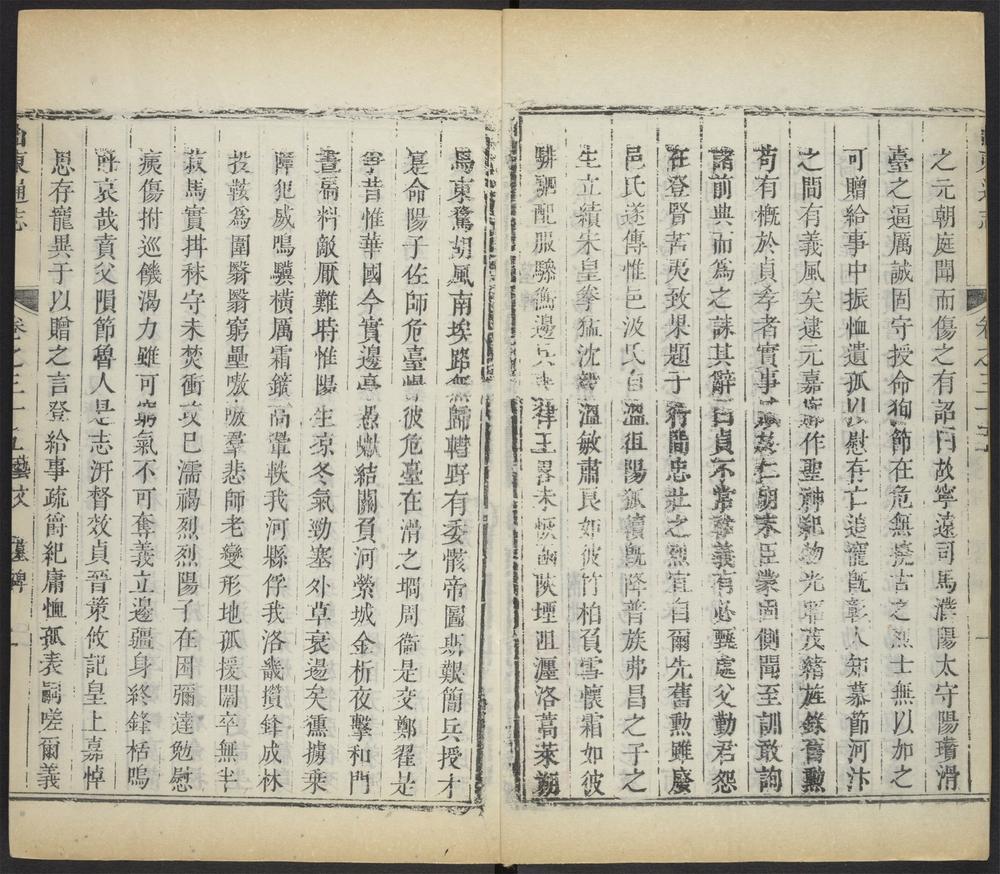 之元朝庭聞而傷之有詔曰故寧遠司馬濮陽太守陽瓚滑
臺之逼厲誠固守授命狥節在危無撓古之烈士無以加之
可贈給事中振恤遺孤以慰存亡追寵既彰人知慕節河汴
之間有義風矣逮元嘉廓作聖神紀物光昭茂緒旌錄舊勲
苟有概於貞孝者實事感於仁明末臣蒙固側聞至訓敢詢
諸前典而為之誄其辭曰貞不常祐義有必甄處父勤君怨
在登賢苦夷致果題子行間忠壯之烈宜自爾先舊勲雖廢
邑氏遂傳惟邑汲氏自溫徂陽狐續既降晉族弗昌之子之
生立績朱皇拳猛沈毅溫敏肅良如彼竹柏負雪懷霜如彼
騑駟配服驂衡邊兵喪律王畧未恢函陝堙阻瀍洛蒿萊朔
馬東騖胡風南埃路無歸轊野有委骸帝圖斯艱簡兵授才
寔命陽子佐師危臺憬彼危臺在滑之坰周衛是交鄭翟是
爭昔惟華國今實邊亭憑巘結關負河縈城金柝夜擊和門
晝扃料敵厭難時惟陽生凉冬氣勁塞外草衰逷矣獯擄乗
障犯威鳴驥橫厲霜鏑高翬軼我河縣俘我洛畿攢鋒成林
投鞍為圍翳翳窮壘嗷嗷羣悲師老變形地孤援闊卒無半
菽馬實拑秣守未焚衝攻已濡褐烈烈陽子在困彌達勉慰
痍傷拊巡饑渴力雖可窮氣不可奪義立邊疆身終鋒栝嗚
呼哀哉賁父隕節魯人是志汧督效貞晉策攸記皇上嘉悼
思存寵異于以贈之言登給事疏爵紀庸恤孤表嗣嗟爾義
山東通志 卷之三十五 藝文